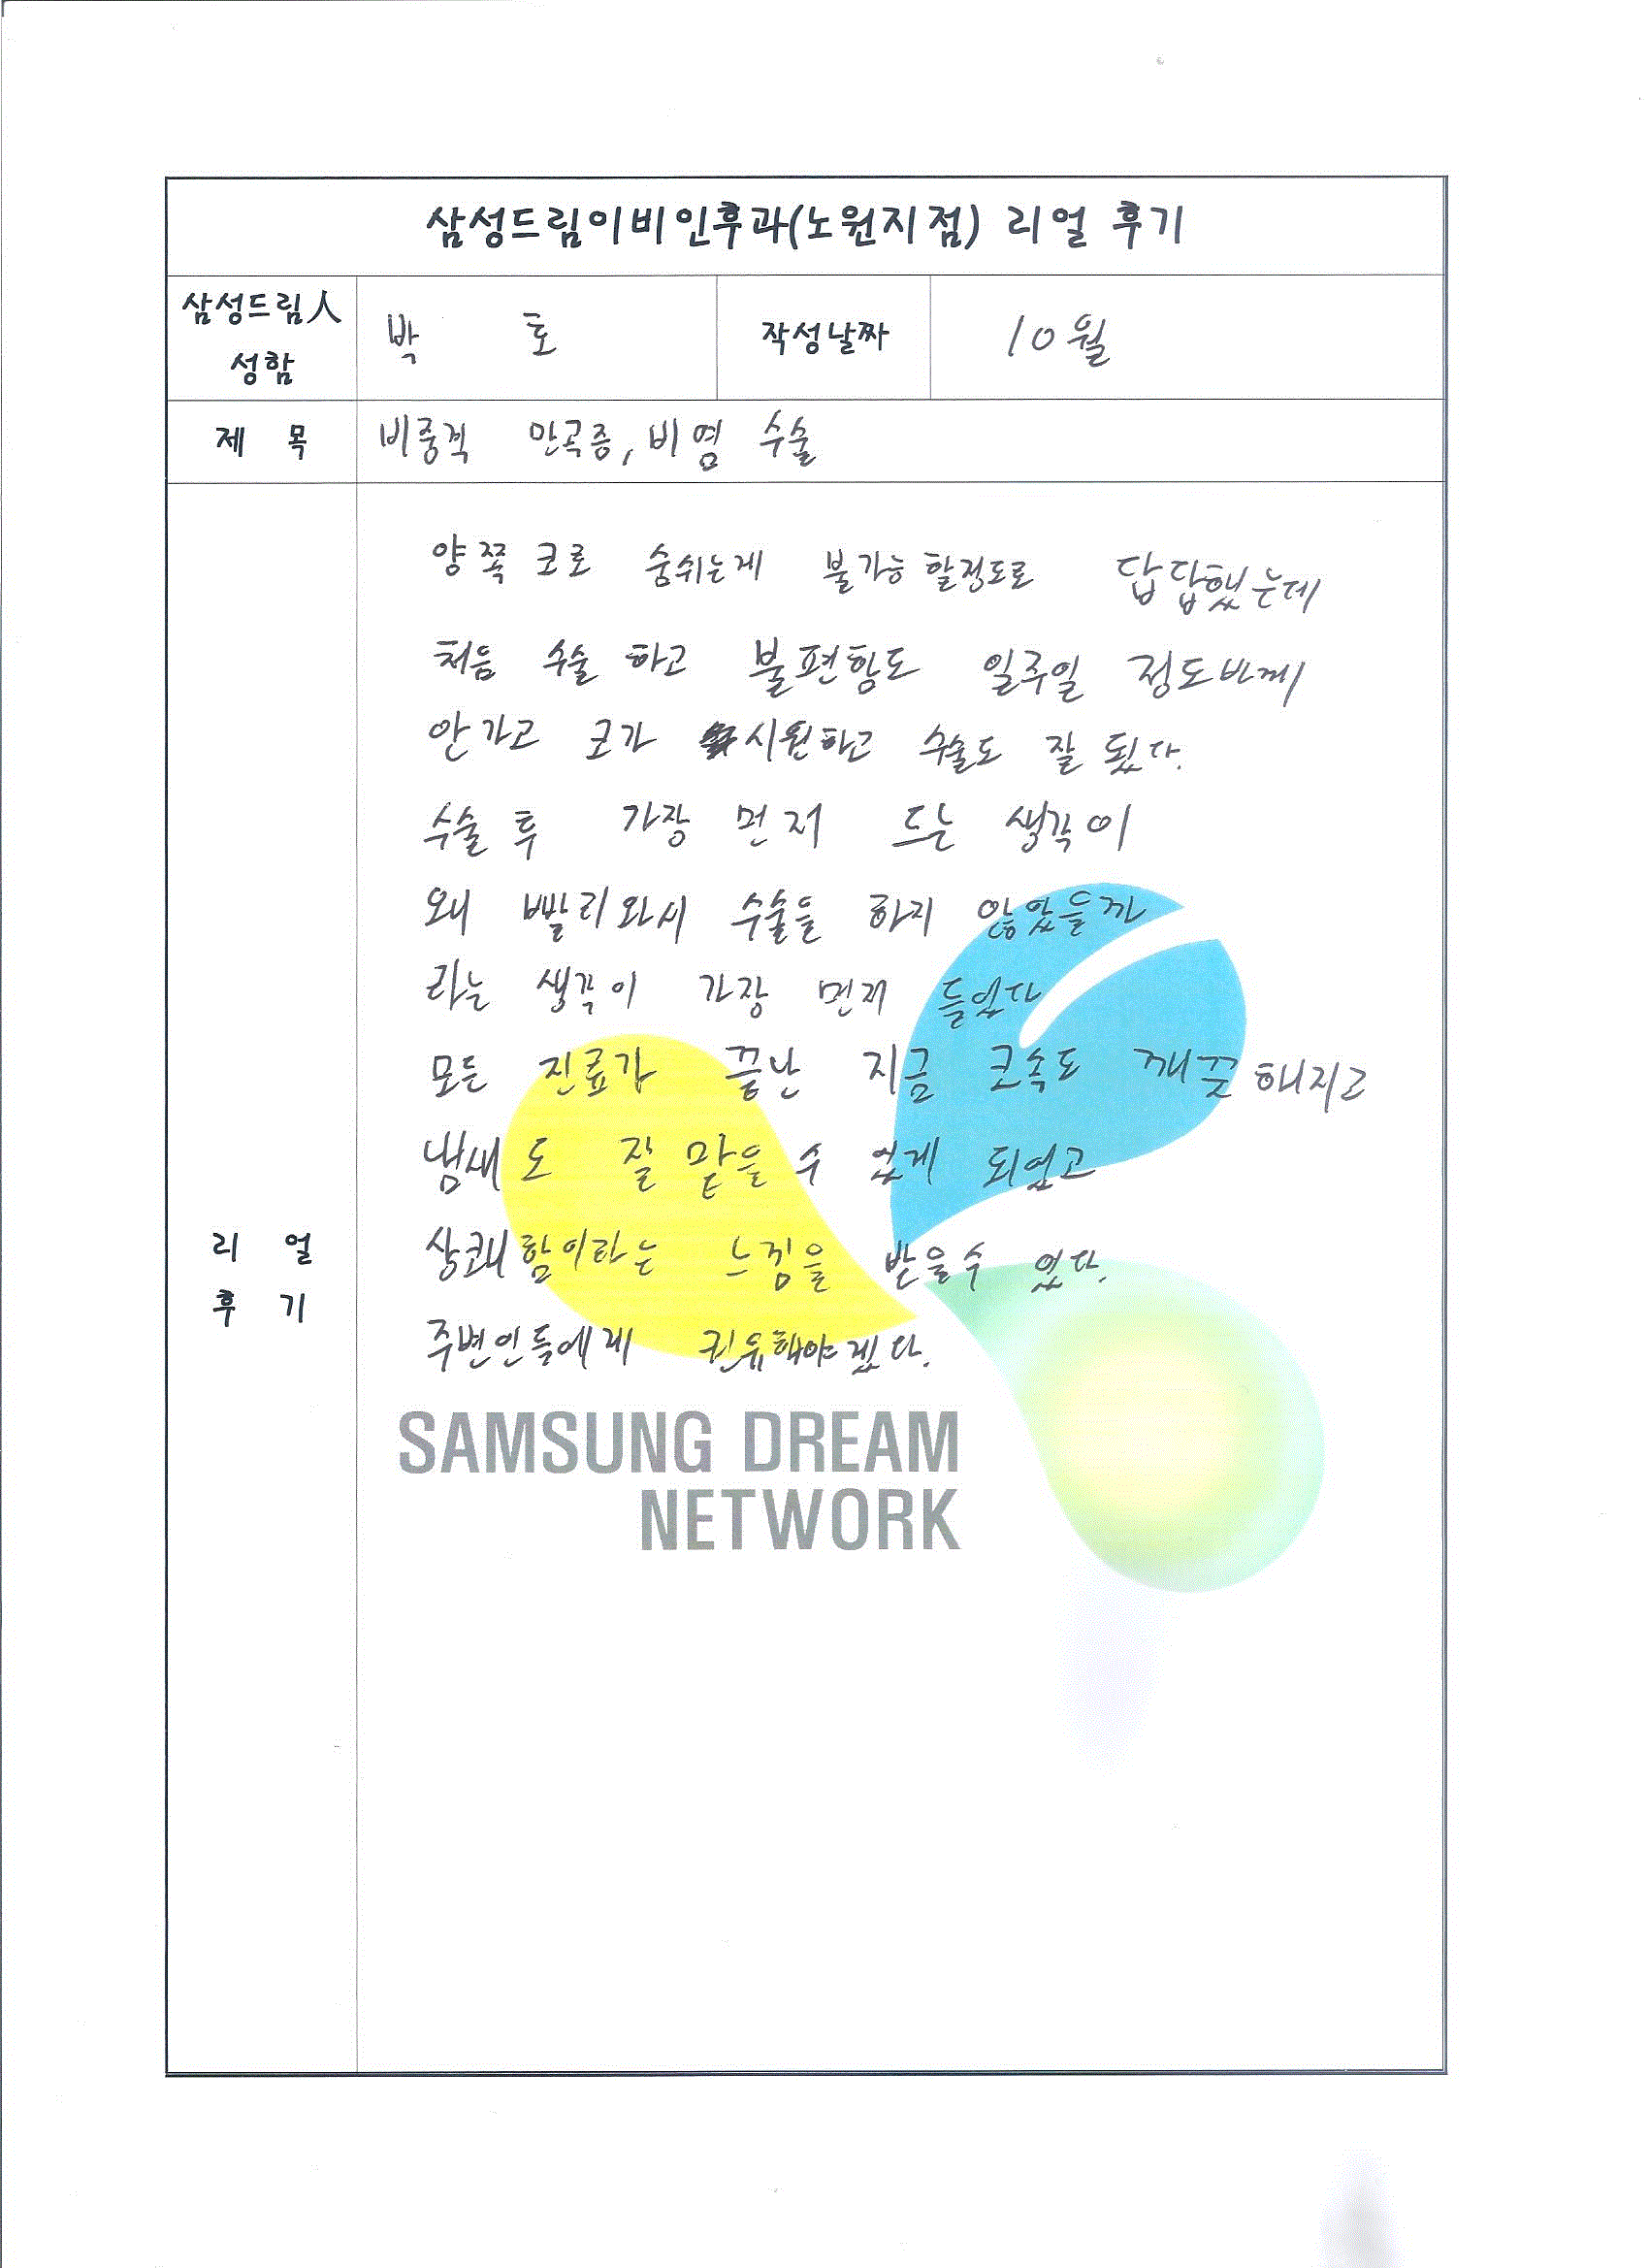 삼성드림이비인후과(노원지점) 리얼 후기
삼성드림人
성함
박 호
작성날짜
10월
제 목
비중격 만곡증, 비염 수술
양쪽 코로 숨쉬는게 불가능 할정도로 답답했는데
처음 수술 하고 불편함도 일주일 정도바께
안가고 코가 시원하고 수술도 잘 됬다.
수술 후 가장 먼저 드는 생각이
왜 빨리와서 수술을 하지 않았을까
라는 생각이 가장 먼저 들었다
모든 진료가 끝난 지금 코속도 깨끗해지고
냄새도 잘 맡을 수 있게 되었고
상쾌함이라는 느낌을 받을수 있다.
주변인들에게 권유해야겠다.
리 얼
후 기
SAMSUNG DREAM
NETWORK